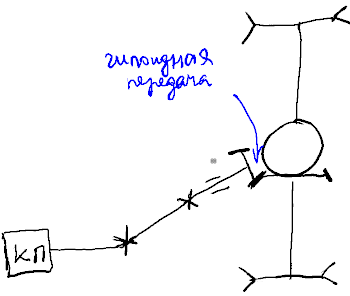 гипоидная
передача
КП